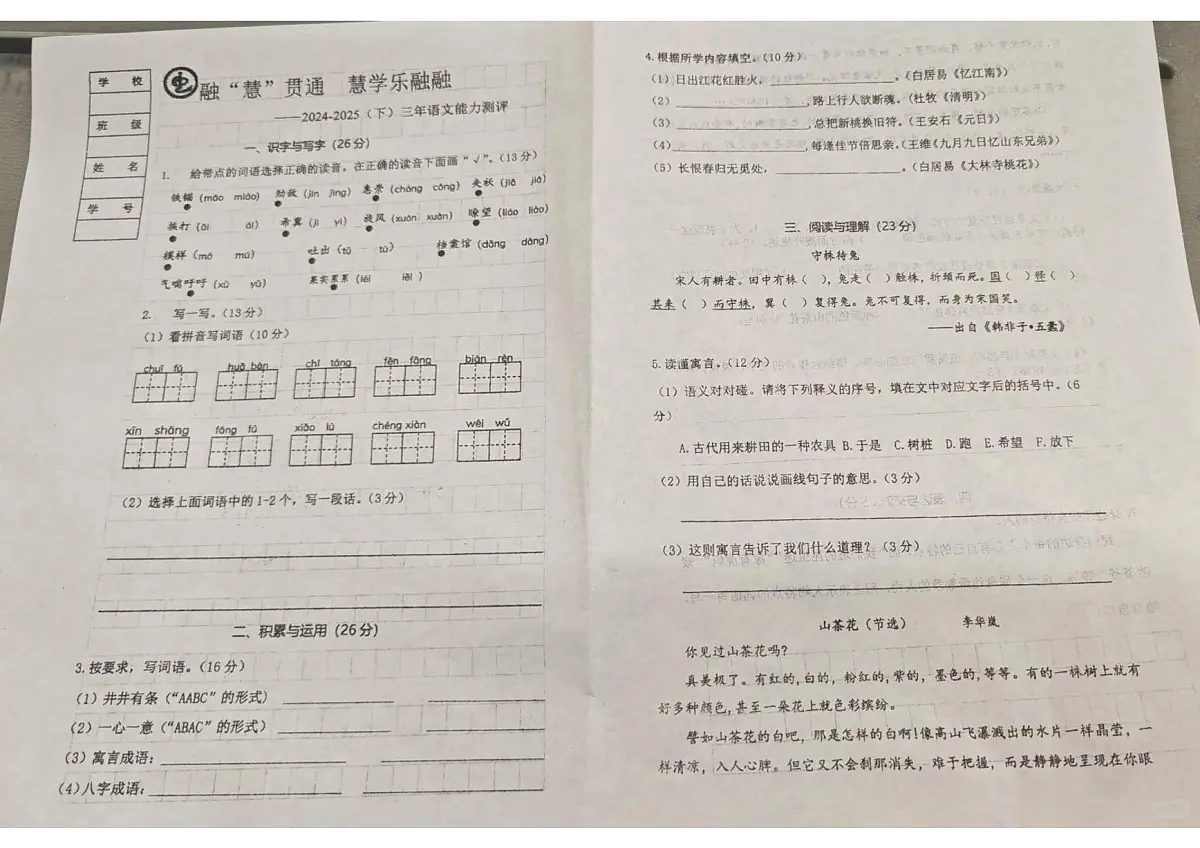 学校
班级
姓名
学号
融“慧”贯通 慧学乐融融
——2024-2025（下）三年语文能力测评
一、识字与写字（26分）
1. 给带点的词语选择正确的读音。在正确的读音下面画“√”。（13分）
铁锚（māo miáo） 劲敌（jìn jìng） 惠崇（chóng cóng） 夹袄（jiā jiá）
挨打（āi ái） 希冀（jì yì） 旋风（xuàn xuàn） 瞭望（liáo liào）
模样（mó mú） 吐出（tǔ tù） 档案馆（dǎng dàng）
气喘吁吁（xū yū） 果实累累（léi lěi）
2. 写一写。（13分）
（1）看拼音写词语（10分）
chuī fú huǒ bàn chí táng fēn fāng biàn rèn
xīn shǎng fāng fú xiāo lù chéng xiàn wèi wǔ
（2）选择上面词语中的1-2个，写一段话。（3分）
二、积累与运用（26分）
3.按要求，写词语。（16分）
（1）井井有条（“AABC”的形式）
（2）一心一意（“ABAC”的形式）
（3）寓言成语：
（4）八字成语：
4.根据所学内容填空。（10分）
（1）日出江花红胜火，。（白居易《忆江南》）
（2），路上行人欲断魂。（杜牧《清明》）
（3），总把新桃换旧符。（王安石《元日》）
（4），每逢佳节倍思亲。（王维《九月九日忆山东兄弟》）
（5）长恨春归无觅处，。（白居易《大林寺桃花》）
三、阅读与理解（23分）
守株待兔
宋人有耕者。田中有株（ ），兔走（ ）触株，折颈而死。因（ ）释（ ）
其耒（ ）而守株，冀（ ）复得兔。兔不可复得，而身为宋国笑。
——出自《韩非子·五蠹》
5.读懂寓言。（12分）
（1）语义对对碰。请将下列释义的序号，填在文中对应文字后的括号中。（6
分）
A.古代用来耕田的一种农具 B.于是 C.树桩 D.跑 E.希望 F.放下
（2）用自己的话说说画线句子的意思。（3分）
（3）这则寓言告诉了我们什么道理？（3分）
山茶花（节选） 李华岚
你见过山茶花吗？
真美极了。有红的，白的，粉红的，紫的，墨色的，等等。有的一株树上就有
好多种颜色，甚至一朵花上就色彩缤纷。
譬如山茶花的白吧，那是怎样的白啊！像高山飞瀑溅出的水片一样晶莹，一
样清凉，入人心脾。但它又不会刹那消失，难于把握，而是静静地呈现在你眼